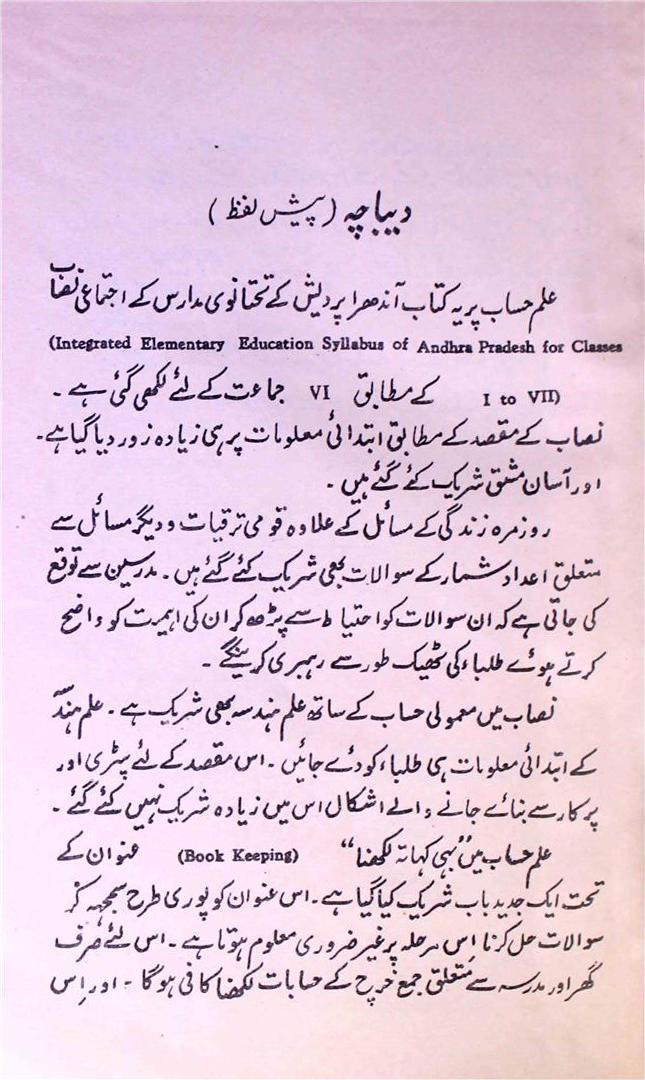 دیباچہ (پیش لفظ)
علم حساب پر یہ کتاب آندھرا پردیش کے تحتانوی مدارس کے اجتماعی نصاب
(Integrated Elementary Education Syllabus of Andhra Pradesh for Classes
I to VII) کے مطابق VI جماعت کے لئے لکھی گئی ہے۔
نصاب کے مقصد کے مطابق ابتدائی معلومات پر ہی زیادہ زور دیا گیا ہے۔
اور آسان مشق شریک کئے گئے ہیں۔
روزمرہ زندگی کے مسائل کے علاوہ قومی ترقیات و دیگر مسائل سے
متعلق اعداد شمار کے سوالات بھی شریک کئے گئے ہیں۔ مدرسین سے توقع
کی جاتی ہے کہ ان سوالات کو احتیاط سے پڑھ کر ان کی اہمیت کو واضح
کرتے ہوئے طلباء کی ٹھیک طور سے رہبری کرینگے۔
نصاب میں معمولی حساب کے ساتھ علم ہندسہ بھی شریک ہے۔ علم ہندسہ
کے ابتدائی معلومات ہی طلباء کو دئے جائیں۔ اس مقصد کے لئے پٹری اور
پرکار سے بنائے جانے والے اشکال اس میں زیادہ شریک نہیں کئے گئے۔
علم حساب میں "بہی کہاتہ لکھنا" (Book Keeping) عنوان کے
تحت ایک جدید باب شریک کیا گیا ہے۔ اس عنوان کو پوری طرح سمجھہ کر
سوالات حل کرنا اِس مرحلہ پر غیر ضروری معلوم ہوتا ہے۔ اس لئے صرف
گھر اور مدرسہ سے متعلق جمع خرچ کے حسابات لکھنا کافی ہوگا۔ اور اِس